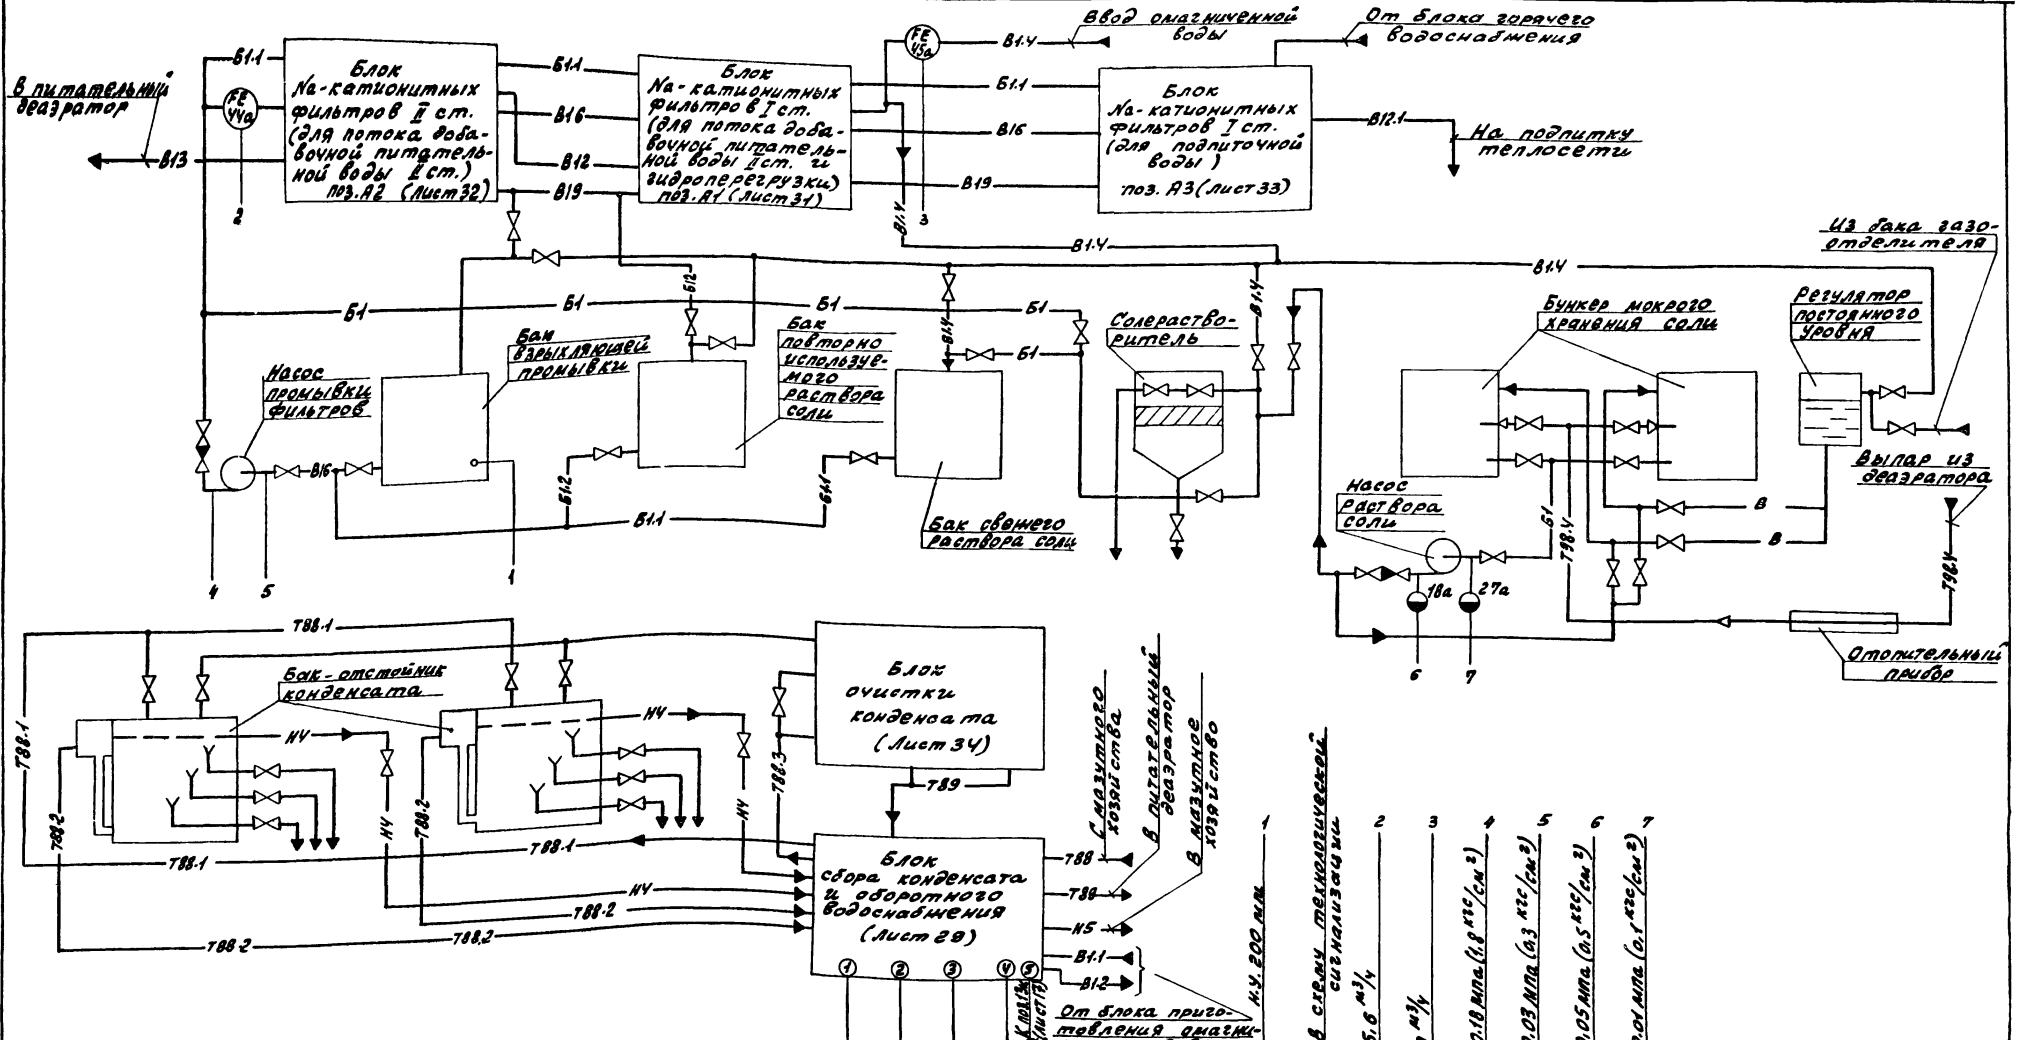 Ввод омагниченной
воды
От блока горячего
водоснабжения
В питательный
деаэратор
Б1.1
FE
44а
В13
2
Блок
Na-катионитных
фильтров II ст.
(для потока доба-
вочной питатель-
ной воды II ст.)
поз. А2 (лист 32)
Б1.1
В16
В12
В19
Блок
Na-катионитных
фильтров I ст.
(для потока доба-
вочной питатель-
ной воды II ст. и
гидроперегрузки)
поз. А1 (лист 31)
FE
45а
В1.4
3
Б1.1
В16
В19
В1.4
Блок
Na-катионитных
фильтров I ст.
(для подпиточной
воды)
поз. А3 (лист 33)
В12.1
На подпитку
теплосети
Из бака газо-
отделителя
В1.4
В1.4
Б1
Б1
Б1
Б1
Б12
В1.4
В1.4
Б1
Насос
промывки
фильтров
Бак
взрыхляющей
промывки
Бак
повторно
используе-
мого
раствора
соли
Солераство-
ритель
Бункер мокрого
хранения соли
Регулятор
постоянного
уровня
В16
Б1.2
Б1.1
Б1.1
4
5
1
Бак свежего
раствора соли
Насос
раствора
соли
Б1
Т98.4
В
В
18а
27а
6
7
Выпар из
деаэратора
Т98.4
Отопительный
прибор
Т88.1
Бак-отстойник
конденсата
Т88.1
Н4
Н4
Т88.2
Н4
Н4
Т88.2
Т88.3
Блок
очистки
конденсата
(лист 34)
Т89
Т88.1
Т88.1
Н4
Т88.2
Т88.2
Т88.2
Блок
сбора конденсата
и оборотного
водоснабжения
(лист 29)
1
2
3
4
5
Т88
Т89
Н5
В1.1
В1.2
С мазутного
хозяйства
В питательный
деаэратор
В мазутное
хозяйство
К поз. 13к
(лист 17)
От блока приго-
товления омагни-
1
Н.У. 200 мм
в схему технологической
сигнализации
2
5,6 м³/ч
3
м³/ч
4
0.18 МПа (1,8 кгс/см²)
5
0.03 МПа (0,3 кгс/см²)
6
0.05 МПа (0,5 кгс/см²)
7
0.01 МПа (0,1 кгс/см²)